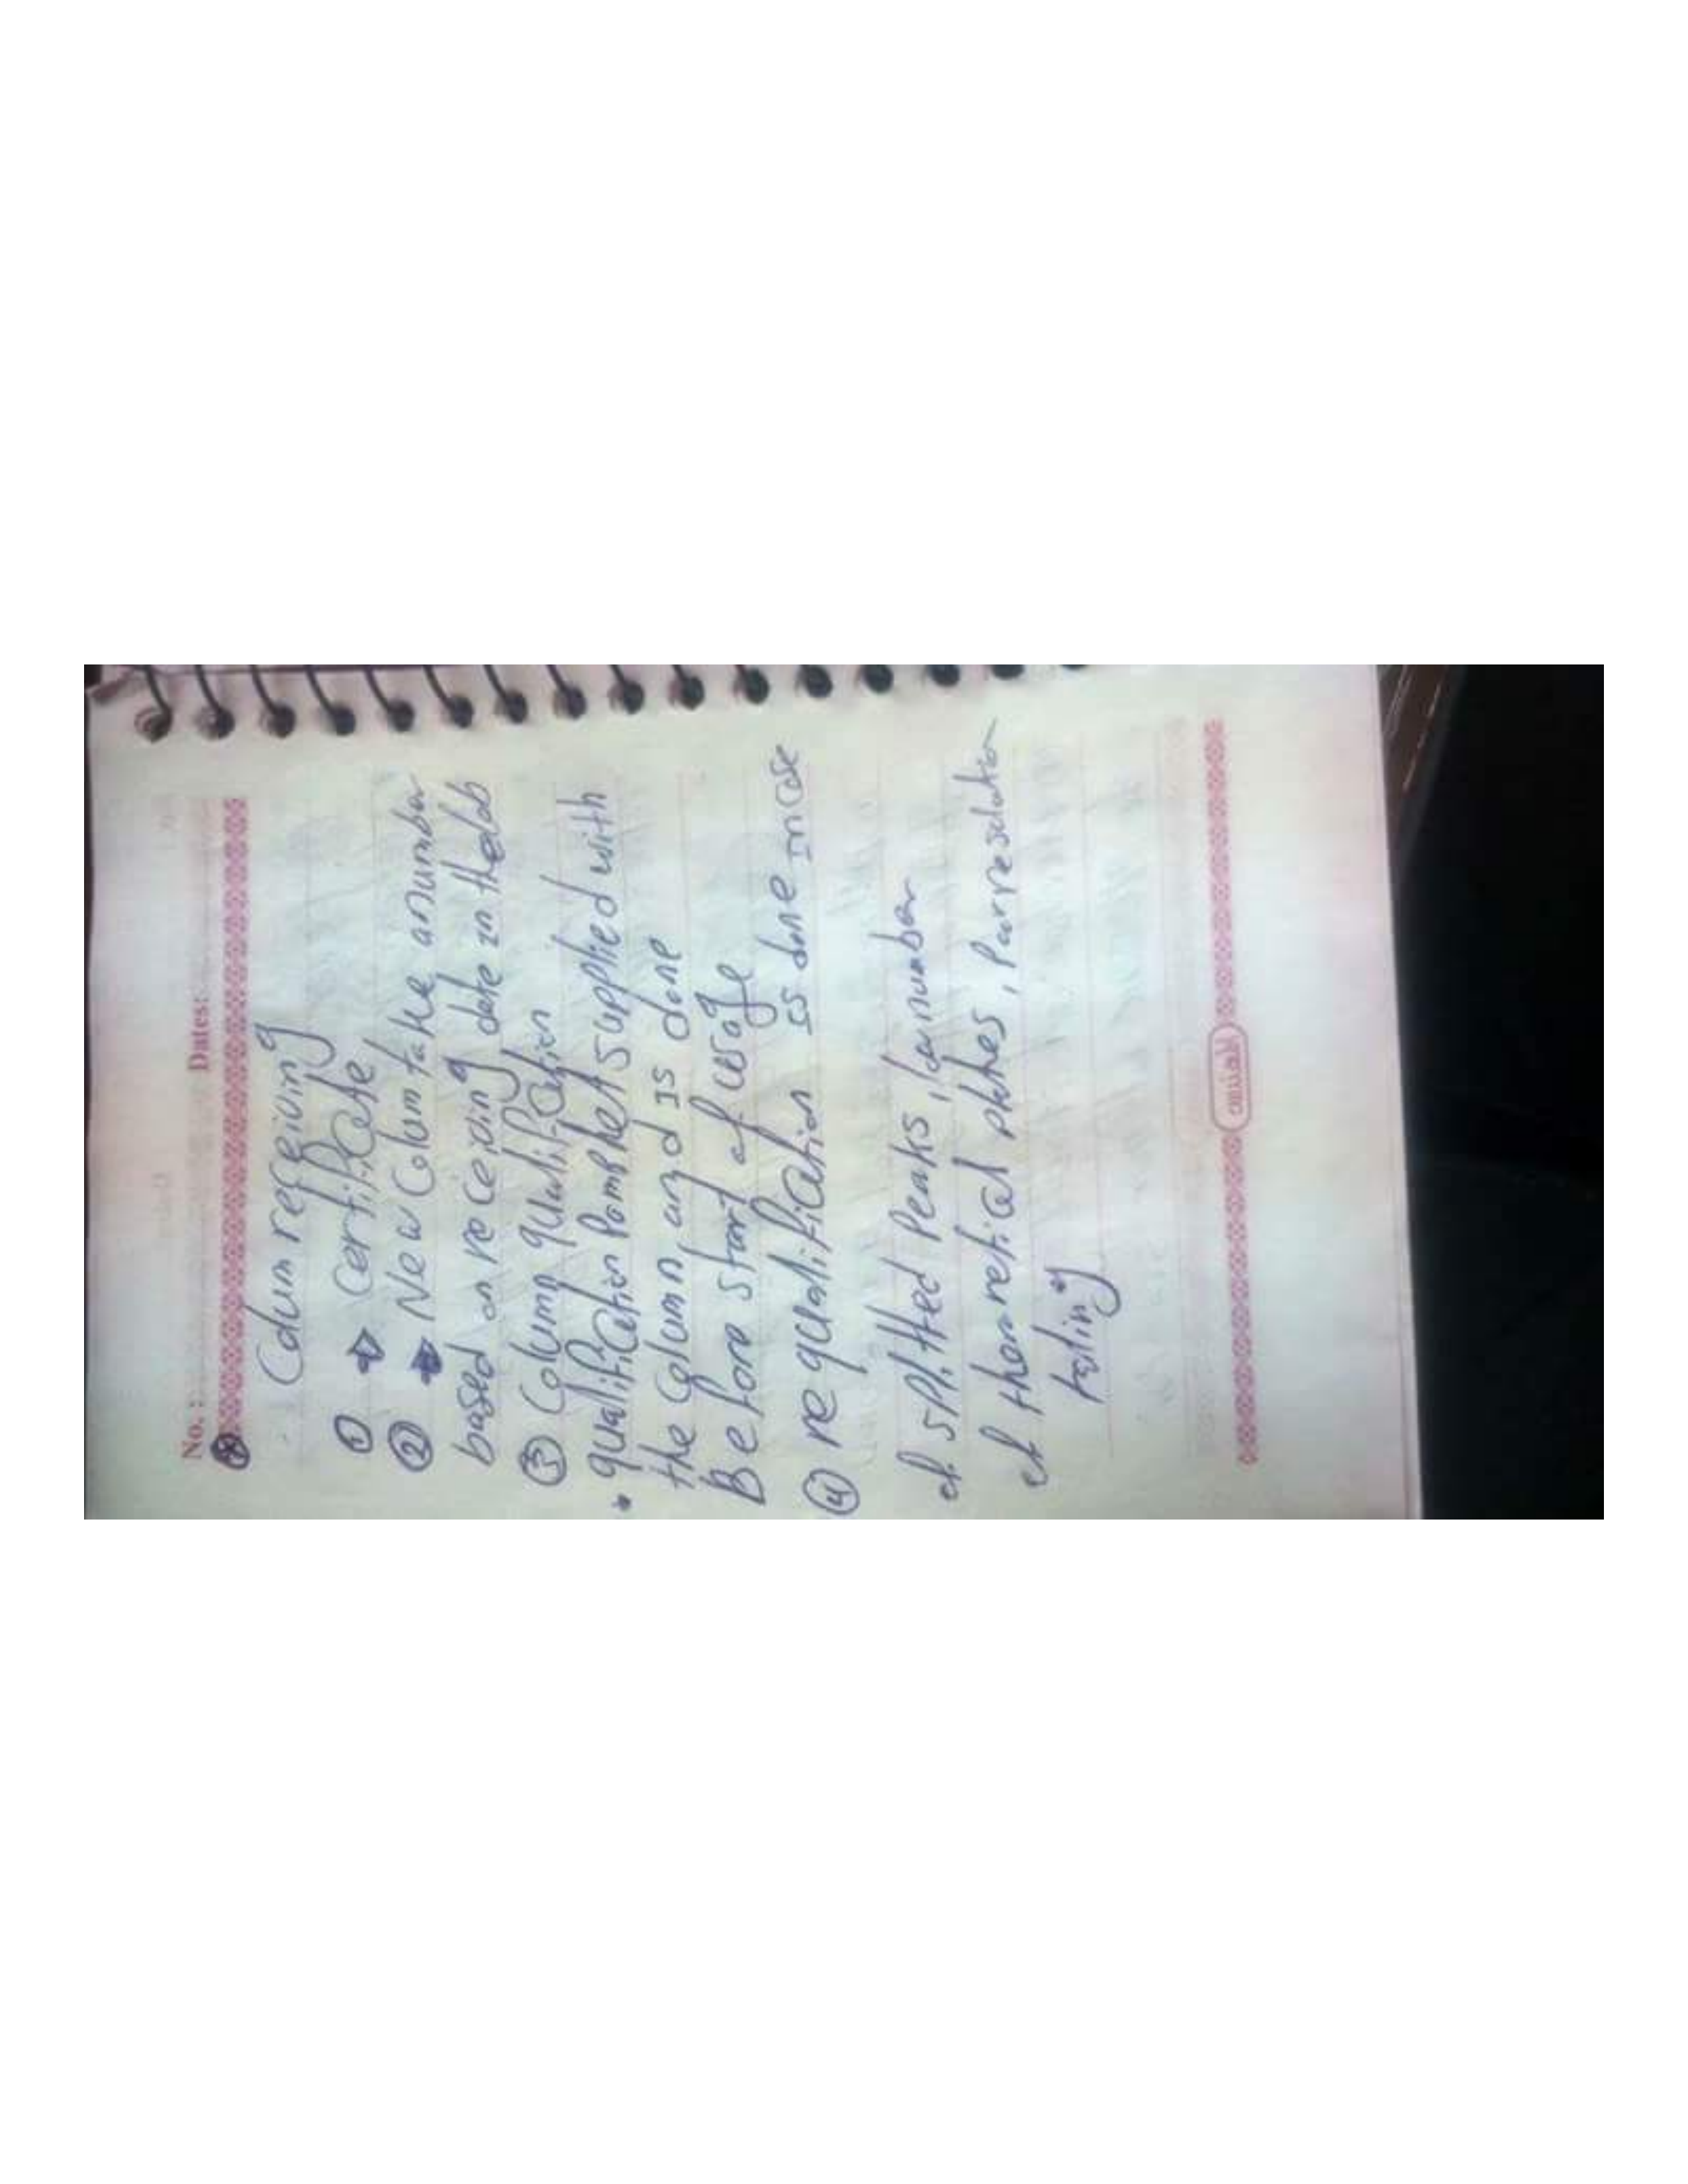 No.: Dates:
Colum receiving
① certificate
② New Colum take anumber
based on receiving date in thelab
③ Column qualification
* qualification Pamphlet supplied with
the Column and is done
Before start of usage
④ requalification is done incase
of splitted Peaks, lownumber
of theoretical plates, Poorresolution
tailing